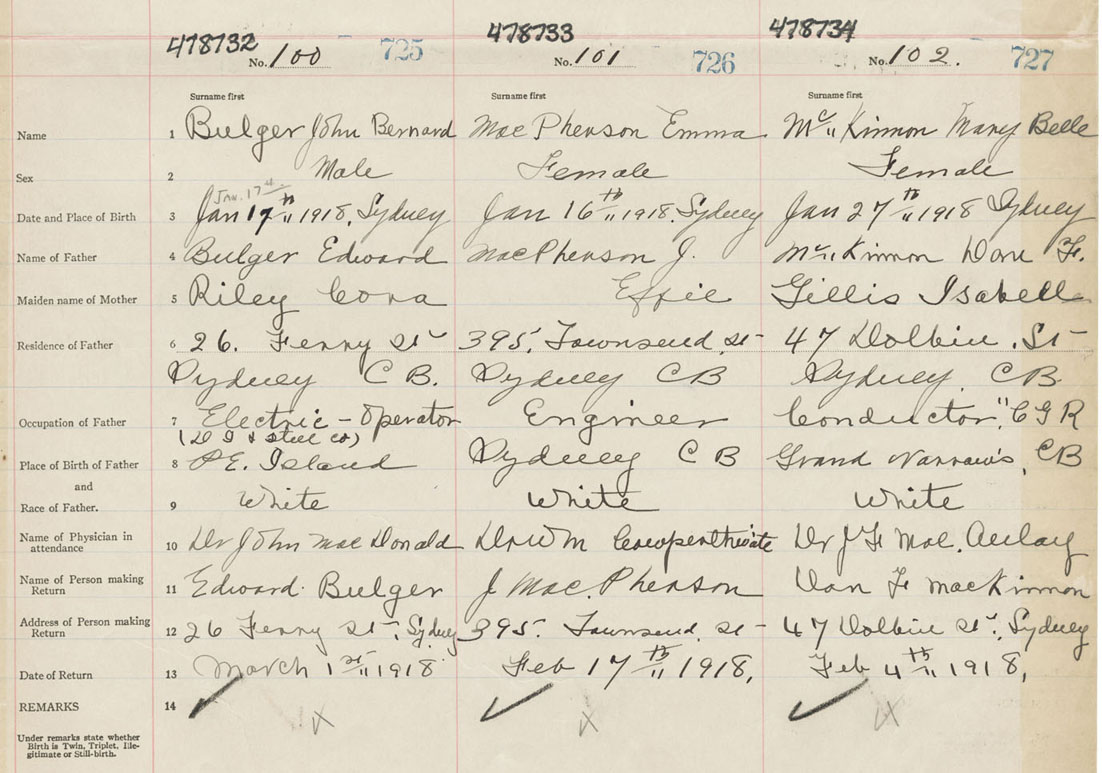 478732 478733 478734
No. 100 725 No. 101 726 No. 102. 727
Surname first Surname first Surname first
Name 1 Bulger John Bernard MacPherson Emma Mc" Kinnon Mary Belle
Sex 2 Male Female Female
Jan. 17
Date and Place of Birth 3 Jan 17th" 1918, Sydney Jan 16th" 1918. Sydney Jan 27th" 1918 Sydney
Name of Father 4 Bulger Edward MacPherson J. Mc" Kinnon Dan F.
Maiden name of Mother 5 Riley Cora Effie Gillis Isabell
Residence of Father 6 26. Ferry St 395, Townsend, St 47 Dolbin. St
Sydney C B. Sydney C B Sydney, C B
Occupation of Father 7 Electric - Operator Engineer Conductor," C G R
(D I & Steel co)
Place of Birth of Father 8 P E. Island Sydney C B Grand Narrows, C B
and
Race of Father. 9 White White White
Name of Physician in
attendance 10 Dr John MacDonald Dr W M Cowperthwaite Dr J F Mac. Aulay
Name of Person making
Return 11 Edward Bulger J Mac. Pherson Dan F MacKinnon
Address of Person making
Return 12 26 Ferry St, Sydney 395. Townsend, St 47 Dolbin St, Sydney
Date of Return 13 March 1st" 1918 Feb 17th" 1918, Feb 4th" 1918,
REMARKS 14
Under remarks state whether
Birth is Twin, Triplet, Ille-
gitimate or Still-birth.